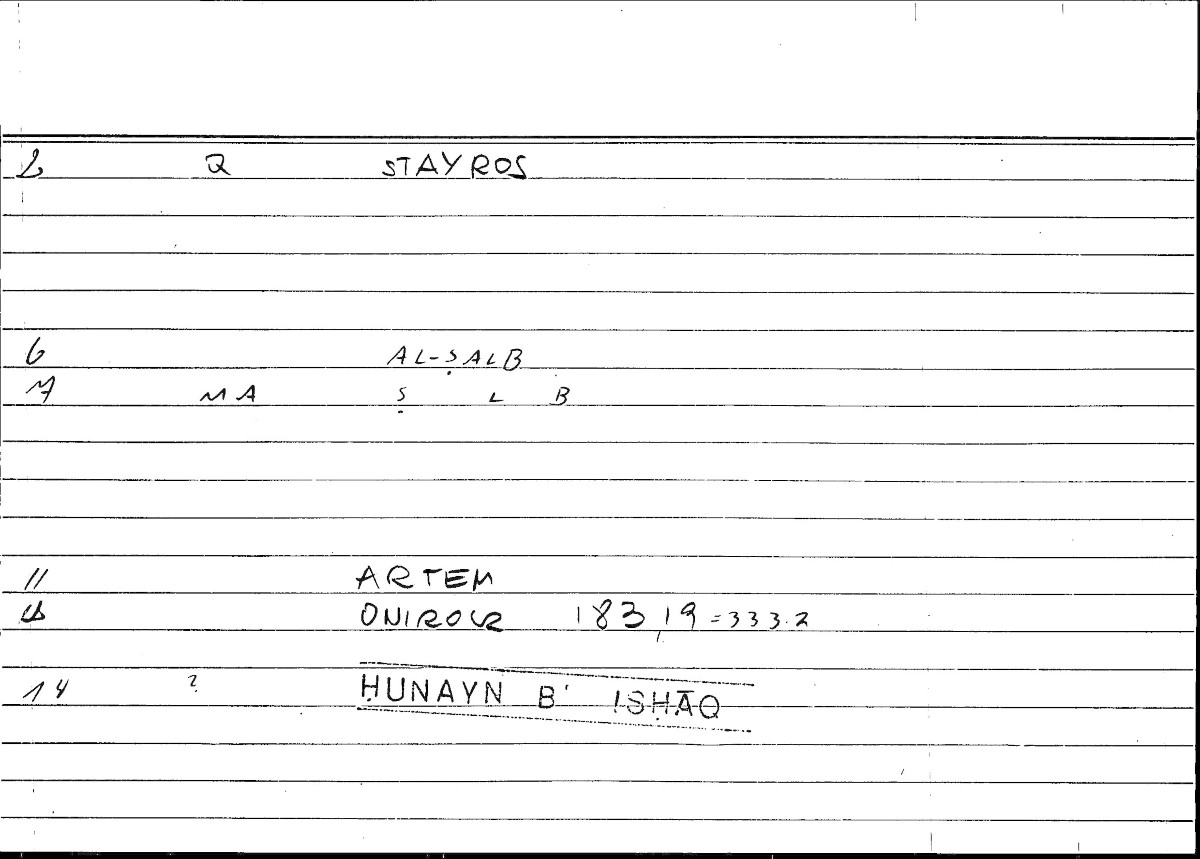 2 Q STAYROS
6 AL-ṢALB
7 MA Ṣ L B
11 ARTEM
ONIROCR 183,19 = 333.2
14 ? ḤUNAYN B' ISḤĀQ